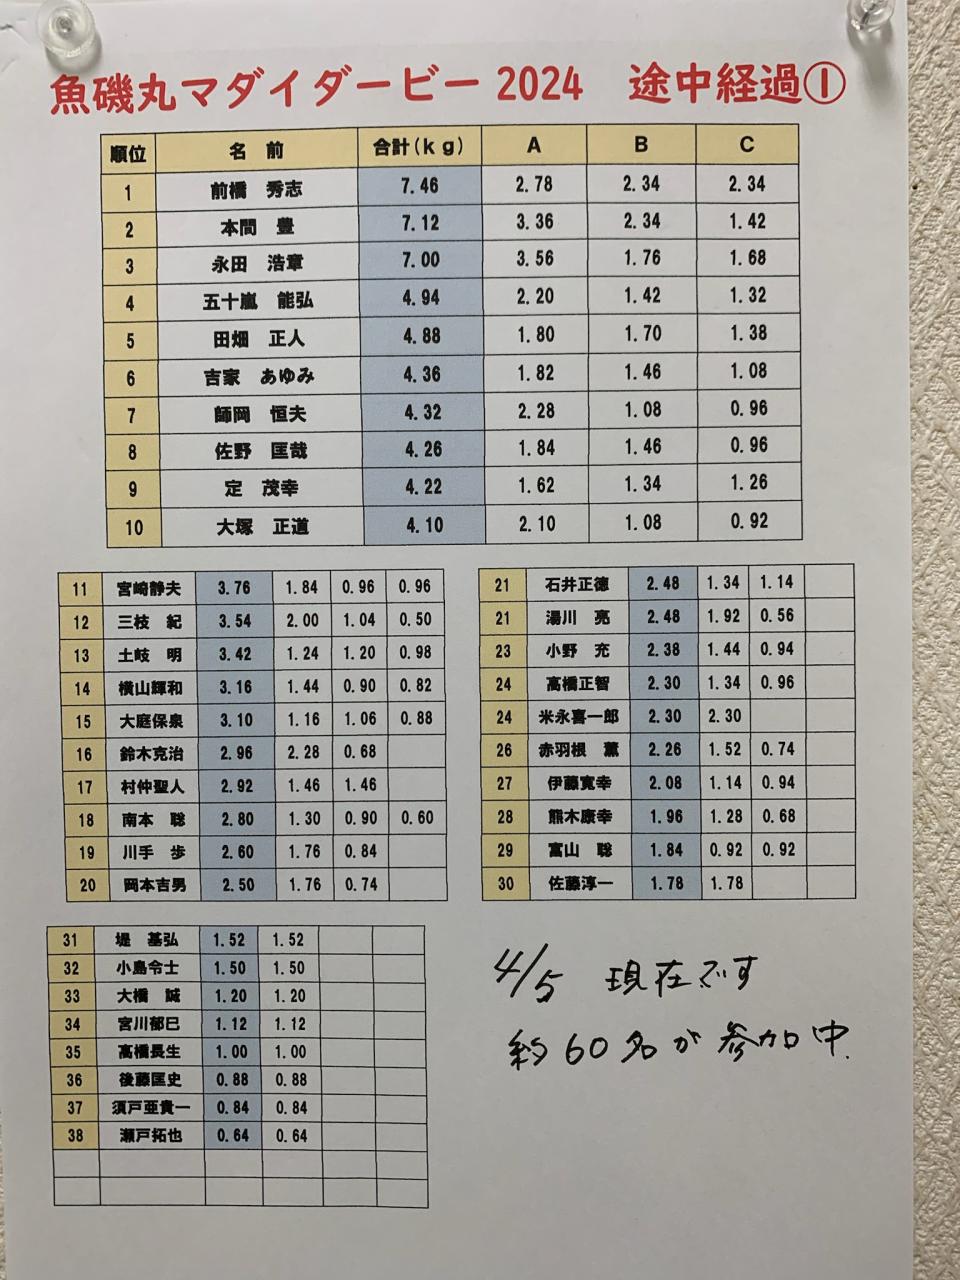 魚磯丸マダイダービー 2024　途中経過①
順位 名　前 合計(ｋｇ) A B C
1 前橋　秀志 7.46 2.78 2.34 2.34
2 本間　豊 7.12 3.36 2.34 1.42
3 永田　浩章 7.00 3.56 1.76 1.68
4 五十嵐　能弘 4.94 2.20 1.42 1.32
5 田畑　正人 4.88 1.80 1.70 1.38
6 吉家　あゆみ 4.36 1.82 1.46 1.08
7 師岡　恒夫 4.32 2.28 1.08 0.96
8 佐野　匡哉 4.26 1.84 1.46 0.96
9 定　茂幸 4.22 1.62 1.34 1.26
10 大塚　正道 4.10 2.10 1.08 0.92
11 宮崎静夫 3.76 1.84 0.96 0.96
12 三枝　紀 3.54 2.00 1.04 0.50
13 土岐　明 3.42 1.24 1.20 0.98
14 横山輝和 3.16 1.44 0.90 0.82
15 大庭保泉 3.10 1.16 1.06 0.88
16 鈴木克治 2.96 2.28 0.68
17 村仲聖人 2.92 1.46 1.46
18 南本　聡 2.80 1.30 0.90 0.60
19 川手　歩 2.60 1.76 0.84
20 岡本吉男 2.50 1.76 0.74
21 石井正德 2.48 1.34 1.14
21 湯川　亮 2.48 1.92 0.56
23 小野　充 2.38 1.44 0.94
24 高橋正智 2.30 1.34 0.96
24 米永喜一郎 2.30 2.30
26 赤羽根　薫 2.26 1.52 0.74
27 伊藤寛幸 2.08 1.14 0.94
28 熊木康幸 1.96 1.28 0.68
29 富山　聡 1.84 0.92 0.92
30 佐藤淳一 1.78 1.78
31 堤　基弘 1.52 1.52
32 小島令士 1.50 1.50
33 大橋　誠 1.20 1.20
34 宮川郁巳 1.12 1.12
35 高橋長生 1.00 1.00
36 後藤匡史 0.88 0.88
37 須戸亜貴一 0.84 0.84
38 瀬戸拓也 0.64 0.64
4/5　現在です
約60名が参加中.